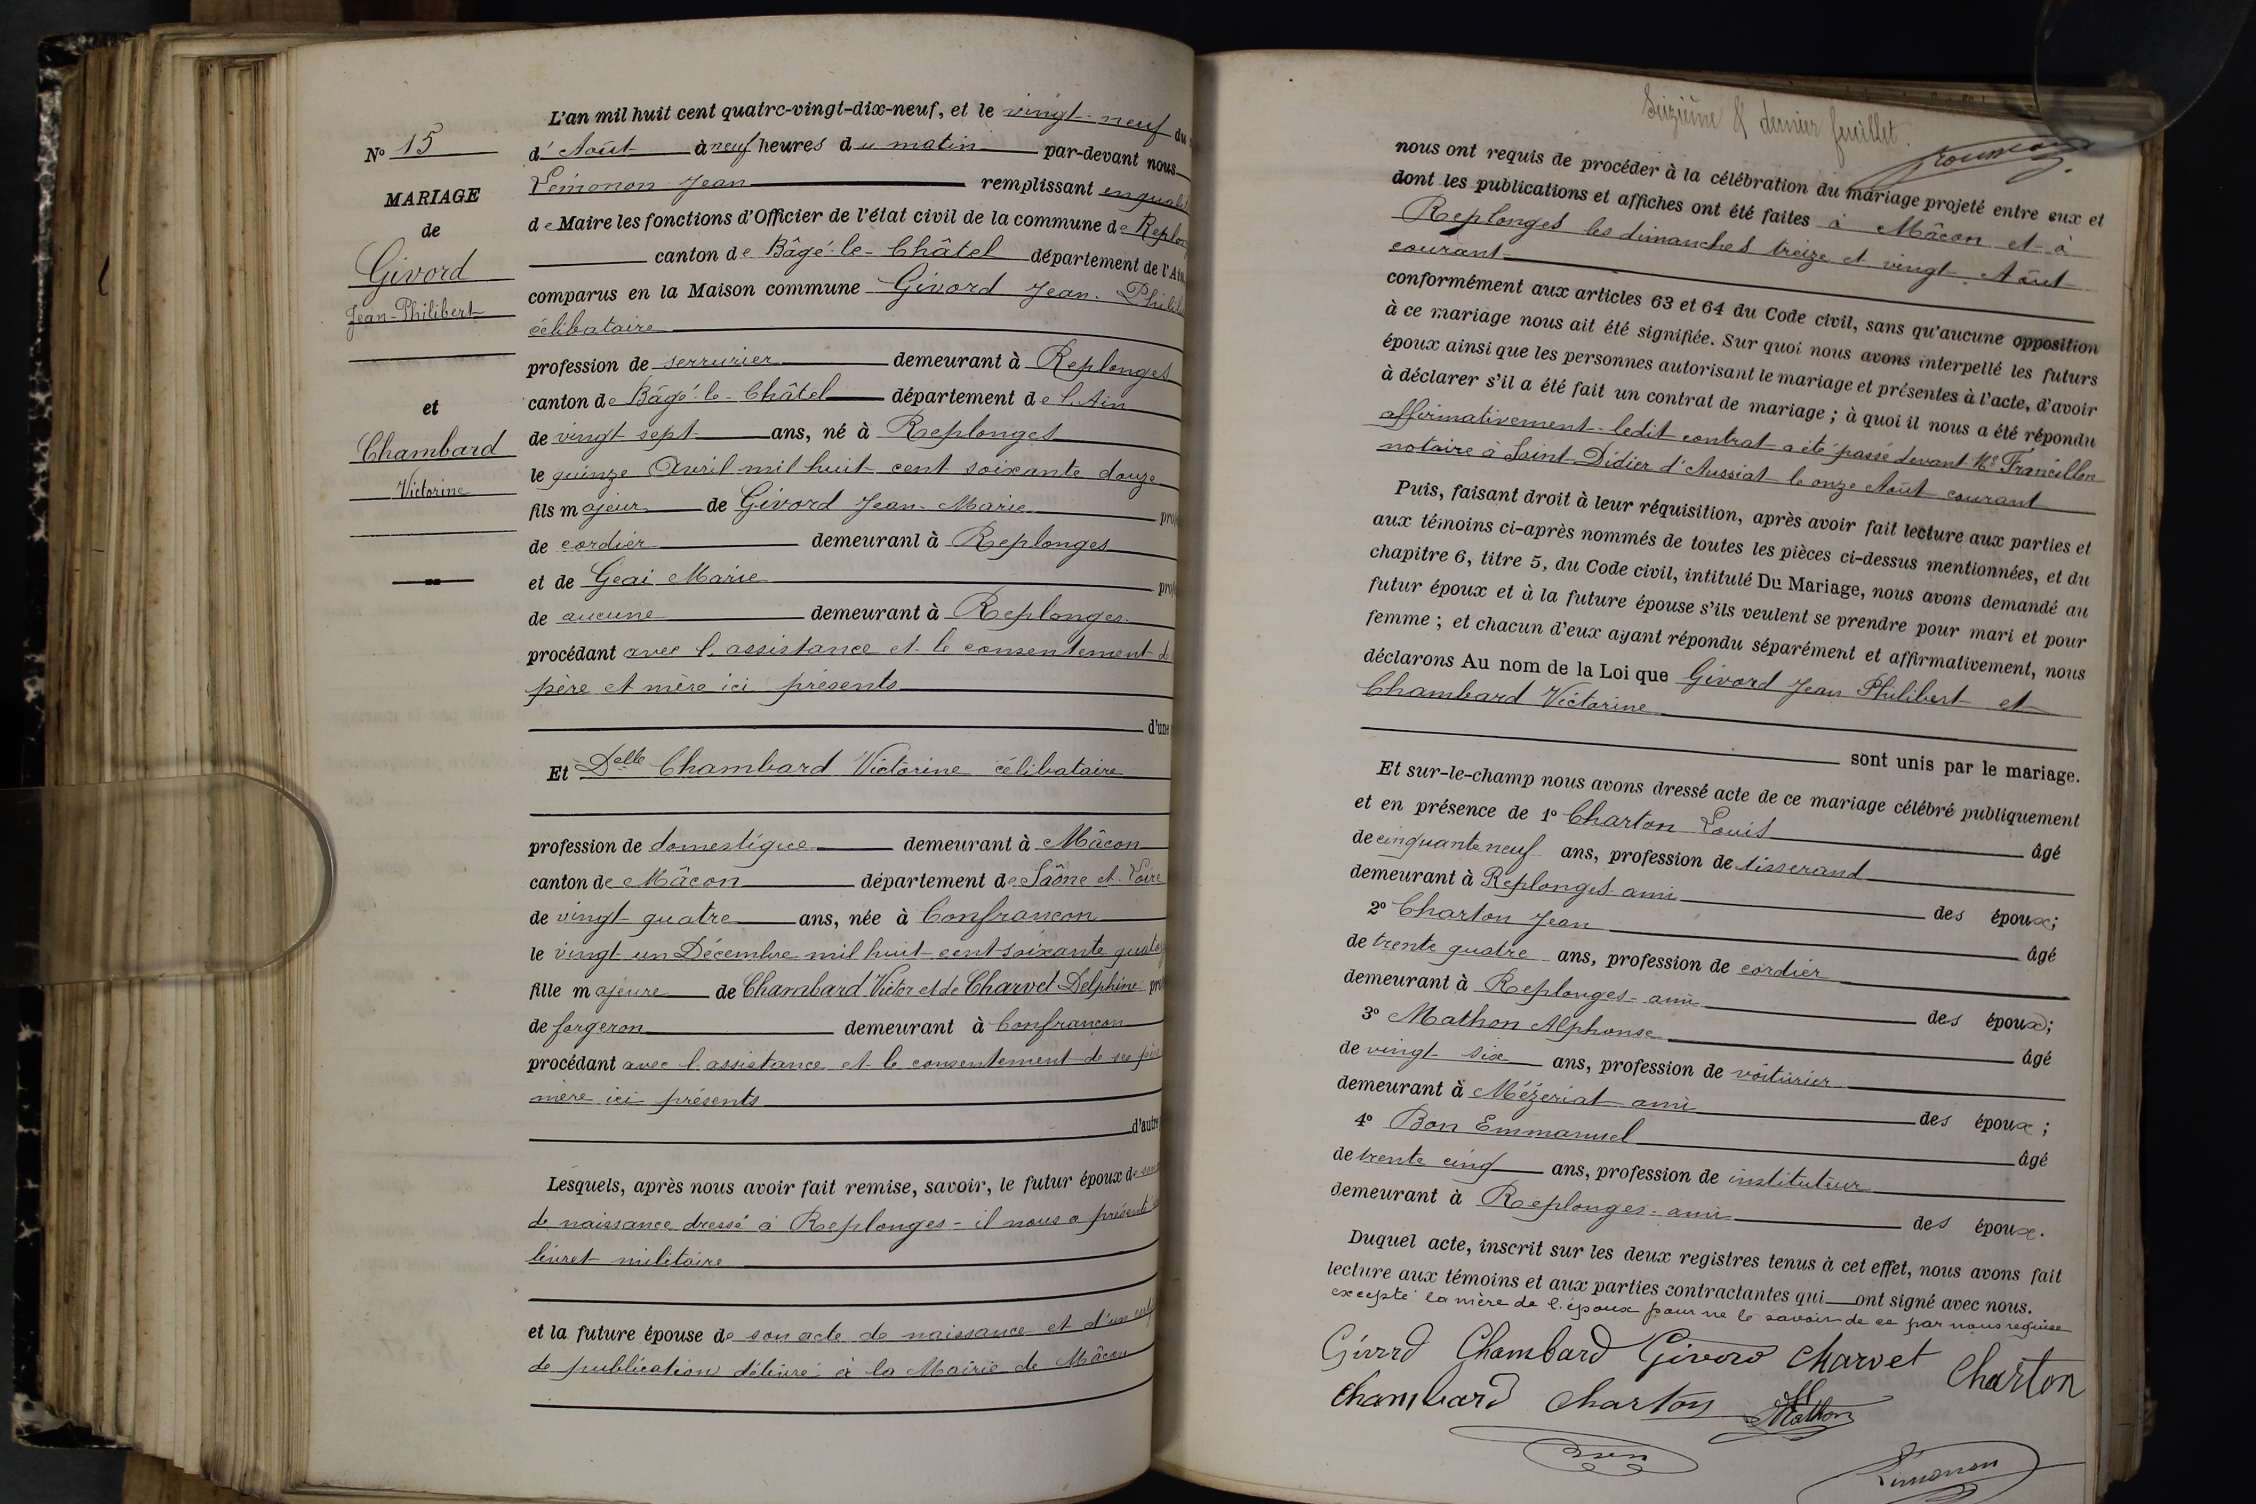 L'an mil huit cent quatre-vingt-dix-neuf, et le vingt-neuf du
N° 15
d'Août à neuf heures du matin par-devant nous
Lémonon Jean remplissant en qualité
MARIAGE
de Maire les fonctions d'Officier de l'état civil de la commune de Replonges
de
canton de Bâgé-le-Châtel département de l'Ain
Givord
comparus en la Maison commune Givord Jean-Philibert
Jean-Philibert
célibataire
profession de serrurier demeurant à Replonges
canton de Bâgé-le-Châtel département de l'Ain
et
de vingt sept ans, né à Replonges
Chambard
le quinze Avril mil huit cent soixante douze
Victorine
fils majeur de Givord Jean-Marie prof
de cordier demeurant à Replonges
et de Geai Marie prof
de aucune demeurant à Replonges
procédant avec l'assistance et le consentement de
père et mère ici présents
d'une
Et Delle Chambard Victorine célibataire
profession de domestique demeurant à Mâcon
canton de Mâcon département de Saône et Loire
de vingt quatre ans, née à Confrançon
le vingt un Décembre mil huit cent soixante quatorze
fille majeure de Chambard Victor et de Charvet Delphine pro
de forgeron demeurant à Confrançon
procédant avec l'assistance et le consentement de ses père
mère ici présents
d'autre
Lesquels, après nous avoir fait remise, savoir, le futur époux de son
de naissance dressé à Replonges - il nous a présenté
livret militaire
et la future épouse de son acte de naissance et d'un
de publication délivré à la Mairie de Mâcon
Seizième & dernier feuillet.
nous ont requis de procéder à la célébration du mariage projeté entre eux et
dont les publications et affiches ont été faites à Mâcon et à
Replonges les dimanches treize et vingt Août
courant
conformément aux articles 63 et 64 du Code civil, sans qu'aucune opposition
à ce mariage nous ait été signifiée. Sur quoi nous avons interpellé les futurs
époux ainsi que les personnes autorisant le mariage et présentes à l'acte, d'avoir
à déclarer s'il a été fait un contrat de mariage ; à quoi il nous a été répondu
affirmativement. ledit contrat a été passé devant Me Francillon
notaire à Saint-Didier d'Aussiat le onze Août courant
Puis, faisant droit à leur réquisition, après avoir fait lecture aux parties et
aux témoins ci-après nommés de toutes les pièces ci-dessus mentionnées, et du
chapitre 6, titre 5, du Code civil, intitulé Du Mariage, nous avons demandé au
futur époux et à la future épouse s'ils veulent se prendre pour mari et pour
femme ; et chacun d'eux ayant répondu séparément et affirmativement, nous
déclarons Au nom de la Loi que Givord Jean Philibert et
Chambard Victorine
sont unis par le mariage.
Et sur-le-champ nous avons dressé acte de ce mariage célébré publiquement
et en présence de 1° Charton Louis âgé
de cinquante neuf ans, profession de tisserand
demeurant à Replonges ami des époux;
2° Charton Jean âgé
de trente quatre ans, profession de cordier
demeurant à Replonges - ami des époux;
3° Mathon Alphonse âgé
de vingt six ans, profession de voiturier
demeurant à Mézériat ami des époux ;
4° Bon Emmanuel âgé
de trente cinq ans, profession de instituteur
demeurant à Replonges - ami des époux.
Duquel acte, inscrit sur les deux registres tenus à cet effet, nous avons fait
lecture aux témoins et aux parties contractantes qui ont signé avec nous.
excepté la mère de l'époux pour ne le savoir de ce par nous requise
Givord Chambard Givord Charvet Charton
Chambard Charton Mathon
Bon
Lémonon